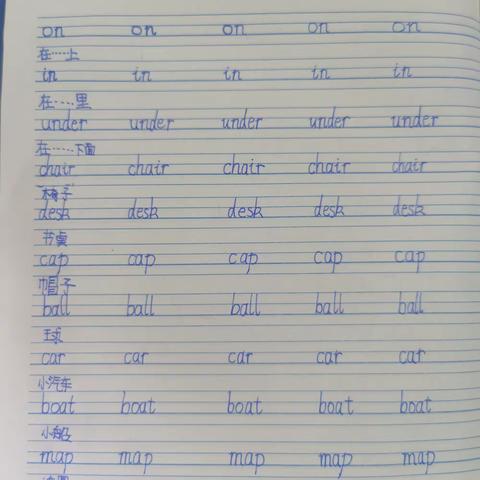 on on on on on
在……上
in in in in in
在……里
under under under under under
在……下面
chair chair chair chair chair
椅子
desk desk desk desk desk
书桌
cap cap cap cap cap
帽子
ball ball ball ball ball
球
car car car car car
小汽车
boat boat boat boat boat
小船
map map map map map